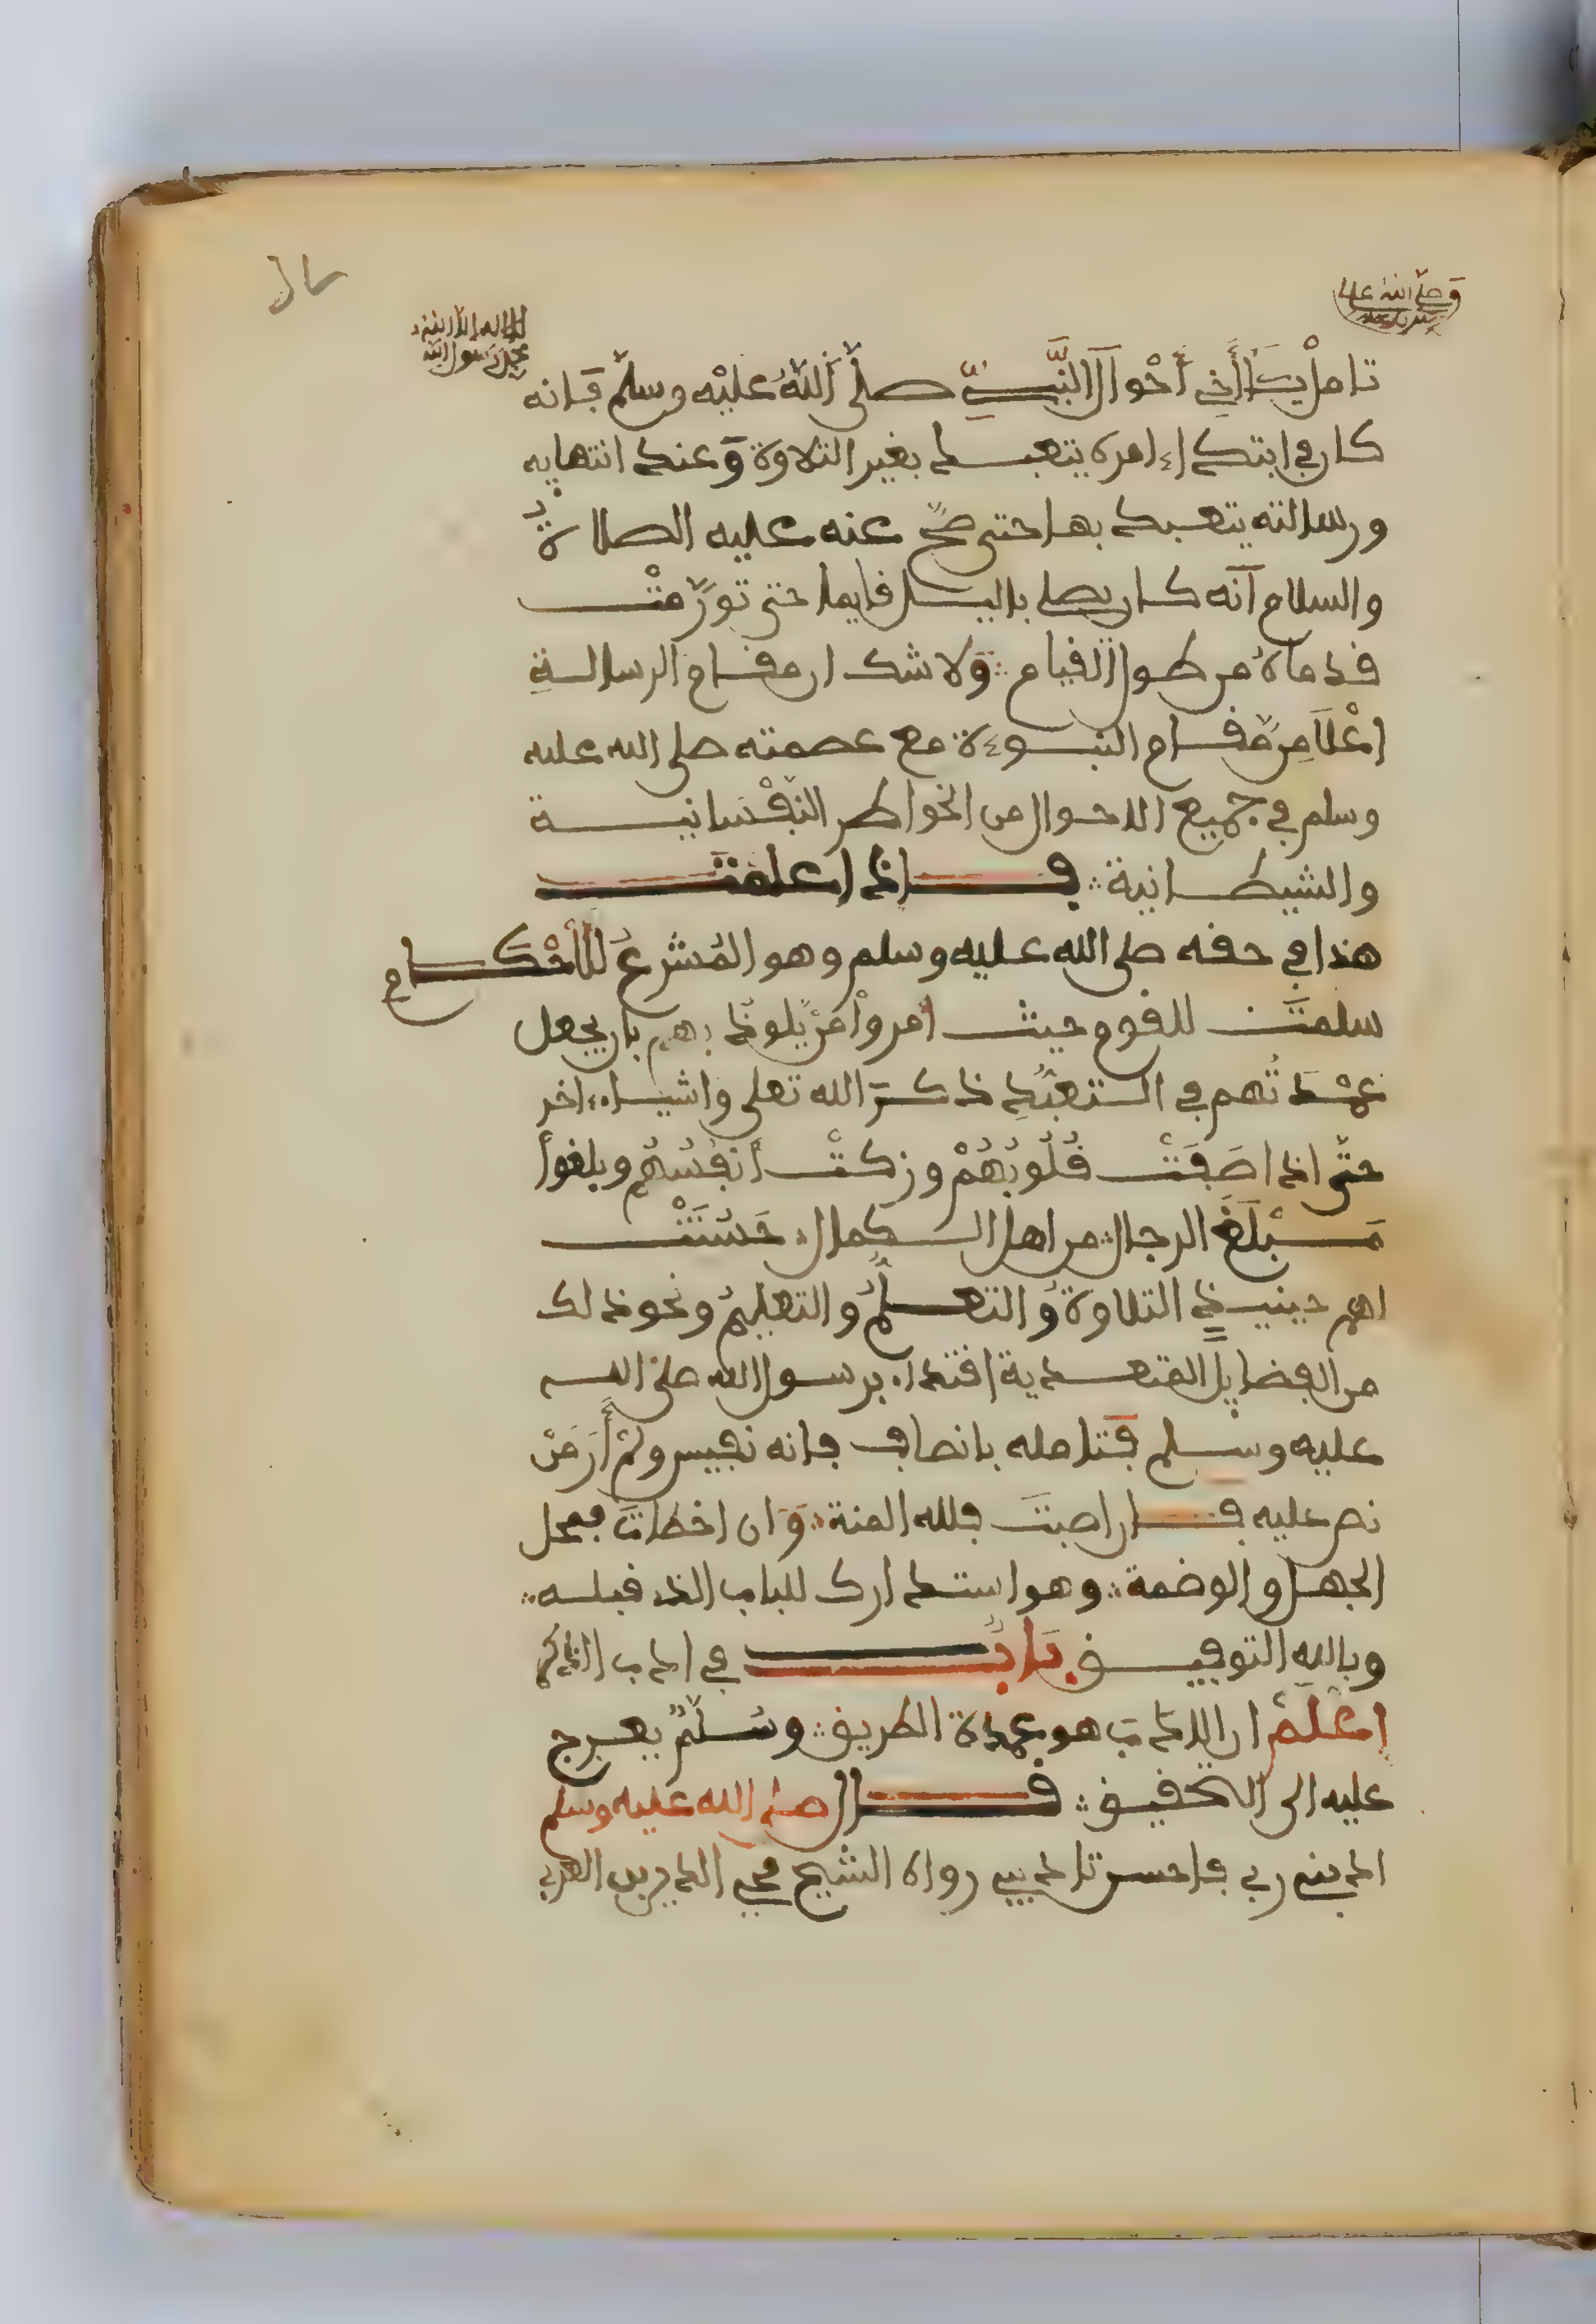 وصلى الله على
سيدنا محمد
لا اله الا الله
محمد رسول الله
تامل يَا أَخِي أَحْوالَ النَّبِيّ صلّى اللهُ عليْه وسلم فإنه
كان في ابتداء امره يتعبد بغير التلاوة وَعند انتهايه
ورسالته يتعبد بها حتى صحّ عنه عليه الصلاةُ
والسلام أنه كان يصلي باليل قايما حتى تورّمتْ
قدماهُ من طول القيام ۞ وَلا شك ان مقام الرسالةِ
اعْلَا مِن مّقام النبوءة مع عصمته صلى الله عليه
وسلم في جميع الاحوال من الخواطر النفْسَانية
والشيطانية ۞ فاذا علمتَ
هذا في حقه صلى الله عليه وسلم وهو المُشرعُ للأحْكَام
سلمتَ للقوم حيث امروا مَن يّلوذ بهم بان يجعل
عمْدَتُهم في التعبُّدِ ذكرَ الله تعلى واشياء اخر
حتّى اذا صَفَتْ قُلُوبُهُمْ وزكتْ أنفُسُهُم وبلغوا
مَبْلَغَ الرجال ۞ من اهل الكمال ۞ حَسُنَتْ
لهم حينيذٍ التلاوةُ والتعلّمُ والتعليمُ ونحو ذلك
من الفضايل المتعدية اقتداء برسول الله صلى الله
عليه وسلم فتامله بانصاف فإنه نفيس ولمْ أَرَ مَنْ
نص عليه فان اصبتَ فلله المنة ۞ وَان اخطاتَ فمحل
الجهل والوضمة ۞ وهو استدارك للباب الذي قبله ۞
وبالله التوفيق بَابٌ في اداب الذكر
اعْلَمْ ان الادَبَ هو عمدة الطريق ۞ وسُلَّمٌ يعرج
عليه الى التحقيق ۞ قال صلى الله عليه وسلم
ادبني ربي فاحسن تاديبي رواه الشيخ محيي الدين بن العربي